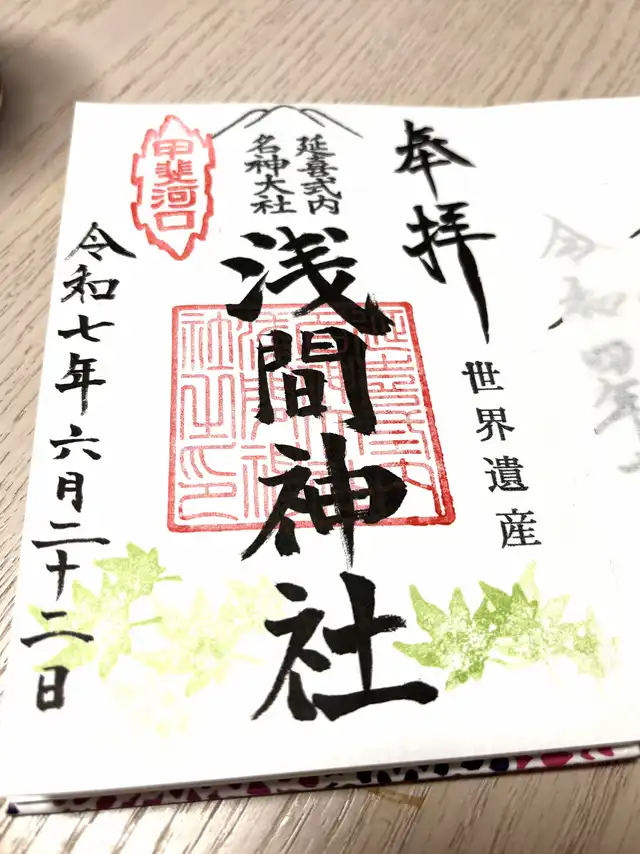 奉拝
世界遺産
延喜式内
名神大社
浅間神社
甲斐河口
令和七年六月二十二日
令和四年